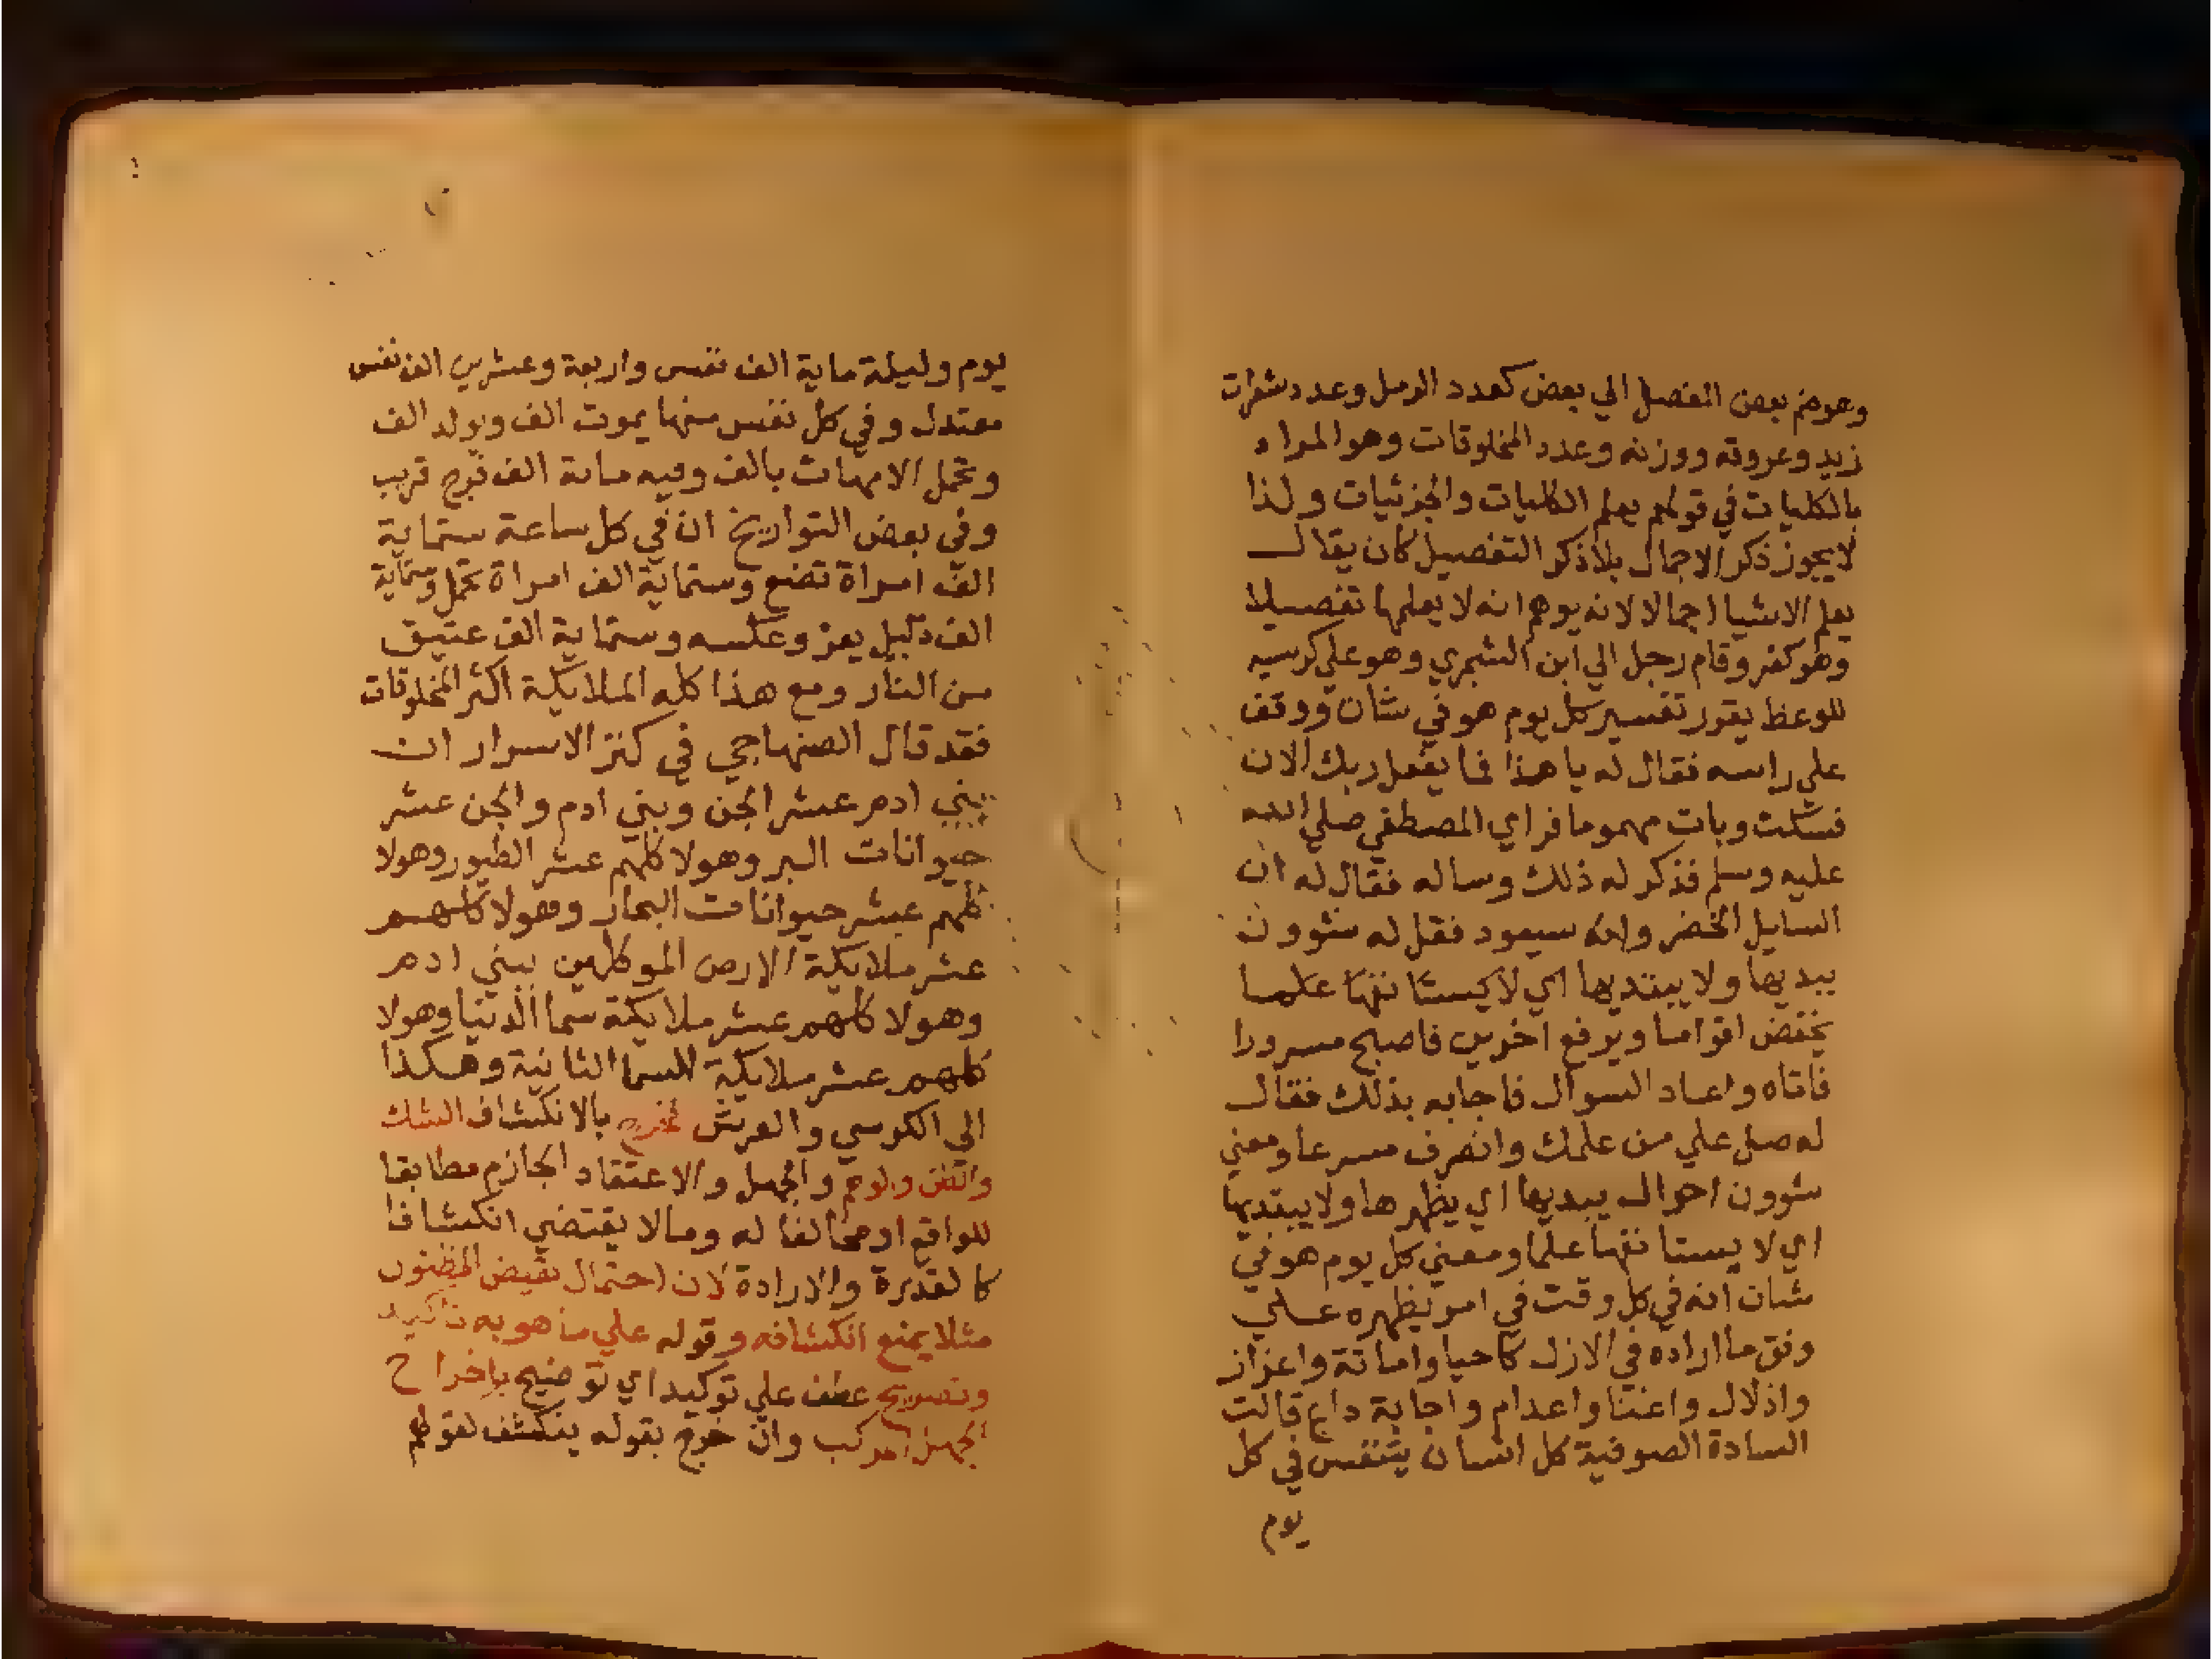 وعرض بعض المفصل الي بعض كعدد الرمل وعدد شعرات
زيد وعروقه ووزنه وعدد المخلوقات وهو المراد
بالكليات في قولهم يعلم الكليات والجزئيات ولذا
لا يجوز ذكر الاجمال بلا ذكر التفصيل كان يقال
يعلم الاشيا اجمالا لانه يوهم انه لا يعلمها تفصيلا
وهو كفر وقام رجل الي ابن الشجري وهو علي كرسيه
للوعظ يقرر تفسير كل يوم هو في شان ووقف
علي راسه فقال له يا هذا فما يفعل ربك الان
فسكت وبات مهموما فراي المصطفي صلي الله
عليه وسلم فذكر له ذلك وساله فقال له ان
السايل الخضر وانه سيعود فقل له شوون
يبديها ولا يبتديها اي لا يستانفها علما
يخفض اقواما ويرفع اخرين فاصبح مسرورا
فاتاه واعاد السوال فاجابه بذلك فقال
له صل علي من علمك وانصرف مسرعا ومعني
شوون احوال يبديها اي يظهرها ولا يبتديها
اي لا يستانفها علما ومعني كل يوم هو في
شان انه في كل وقت في امر يظهره علي
وفق ما اراده في الازل كاحيا واماتة واعزاز
واذلال واغنا واعدام واجابة داع قالت
السادة الصوفية كل انسان يتنفس في كل
يوم
يوم وليلة ماية الف نفس واربعة وعشرين الف نفس
معتدل وفي كل نفس منها يموت الف ويولد الف
وتحمل الامهات بالف وفيه ماية الف فرج قريب
وفي بعض التواريخ ان في كل ساعة ستماية
الف امراة تضع وستماية الف امراة تحمل وستماية
الف ذليل يعز وعكسه وستماية الف عتيق
من النار ومع هذا كله الملايكة اكثر المخلوقات
فقد قال الصنهاجي في كنز الاسرار ان
بني ادم عشر الجن وبني ادم والجن عشر
حيوانات البر وهولا كلهم عشر الطيور وهولا
كلهم عشر حيوانات البحار وهولا كلهم
عشر ملايكة الارض الموكلين ببني ادم
وهولا كلهم عشر ملايكة سما الدنيا وهولا
كلهم عشر ملايكة السما الثانية وهكذا
الي الكرسي والعرش فخرج بالانكشاف الشك
والظن والوهم والجهل والاعتقاد الجازم مطابقا
للواقع او مخالفا له وما لا يقتضي انكشافا
كالقدرة والارادة لان احتمال نقيض المظنون
مثلا يمنع انكشافه وقوله علي ما هو به تاكيد
وتصريح عطف علي توكيد اي توضيح باخراج
الجهل المركب وان خرج بقوله ينكشف لقولهم